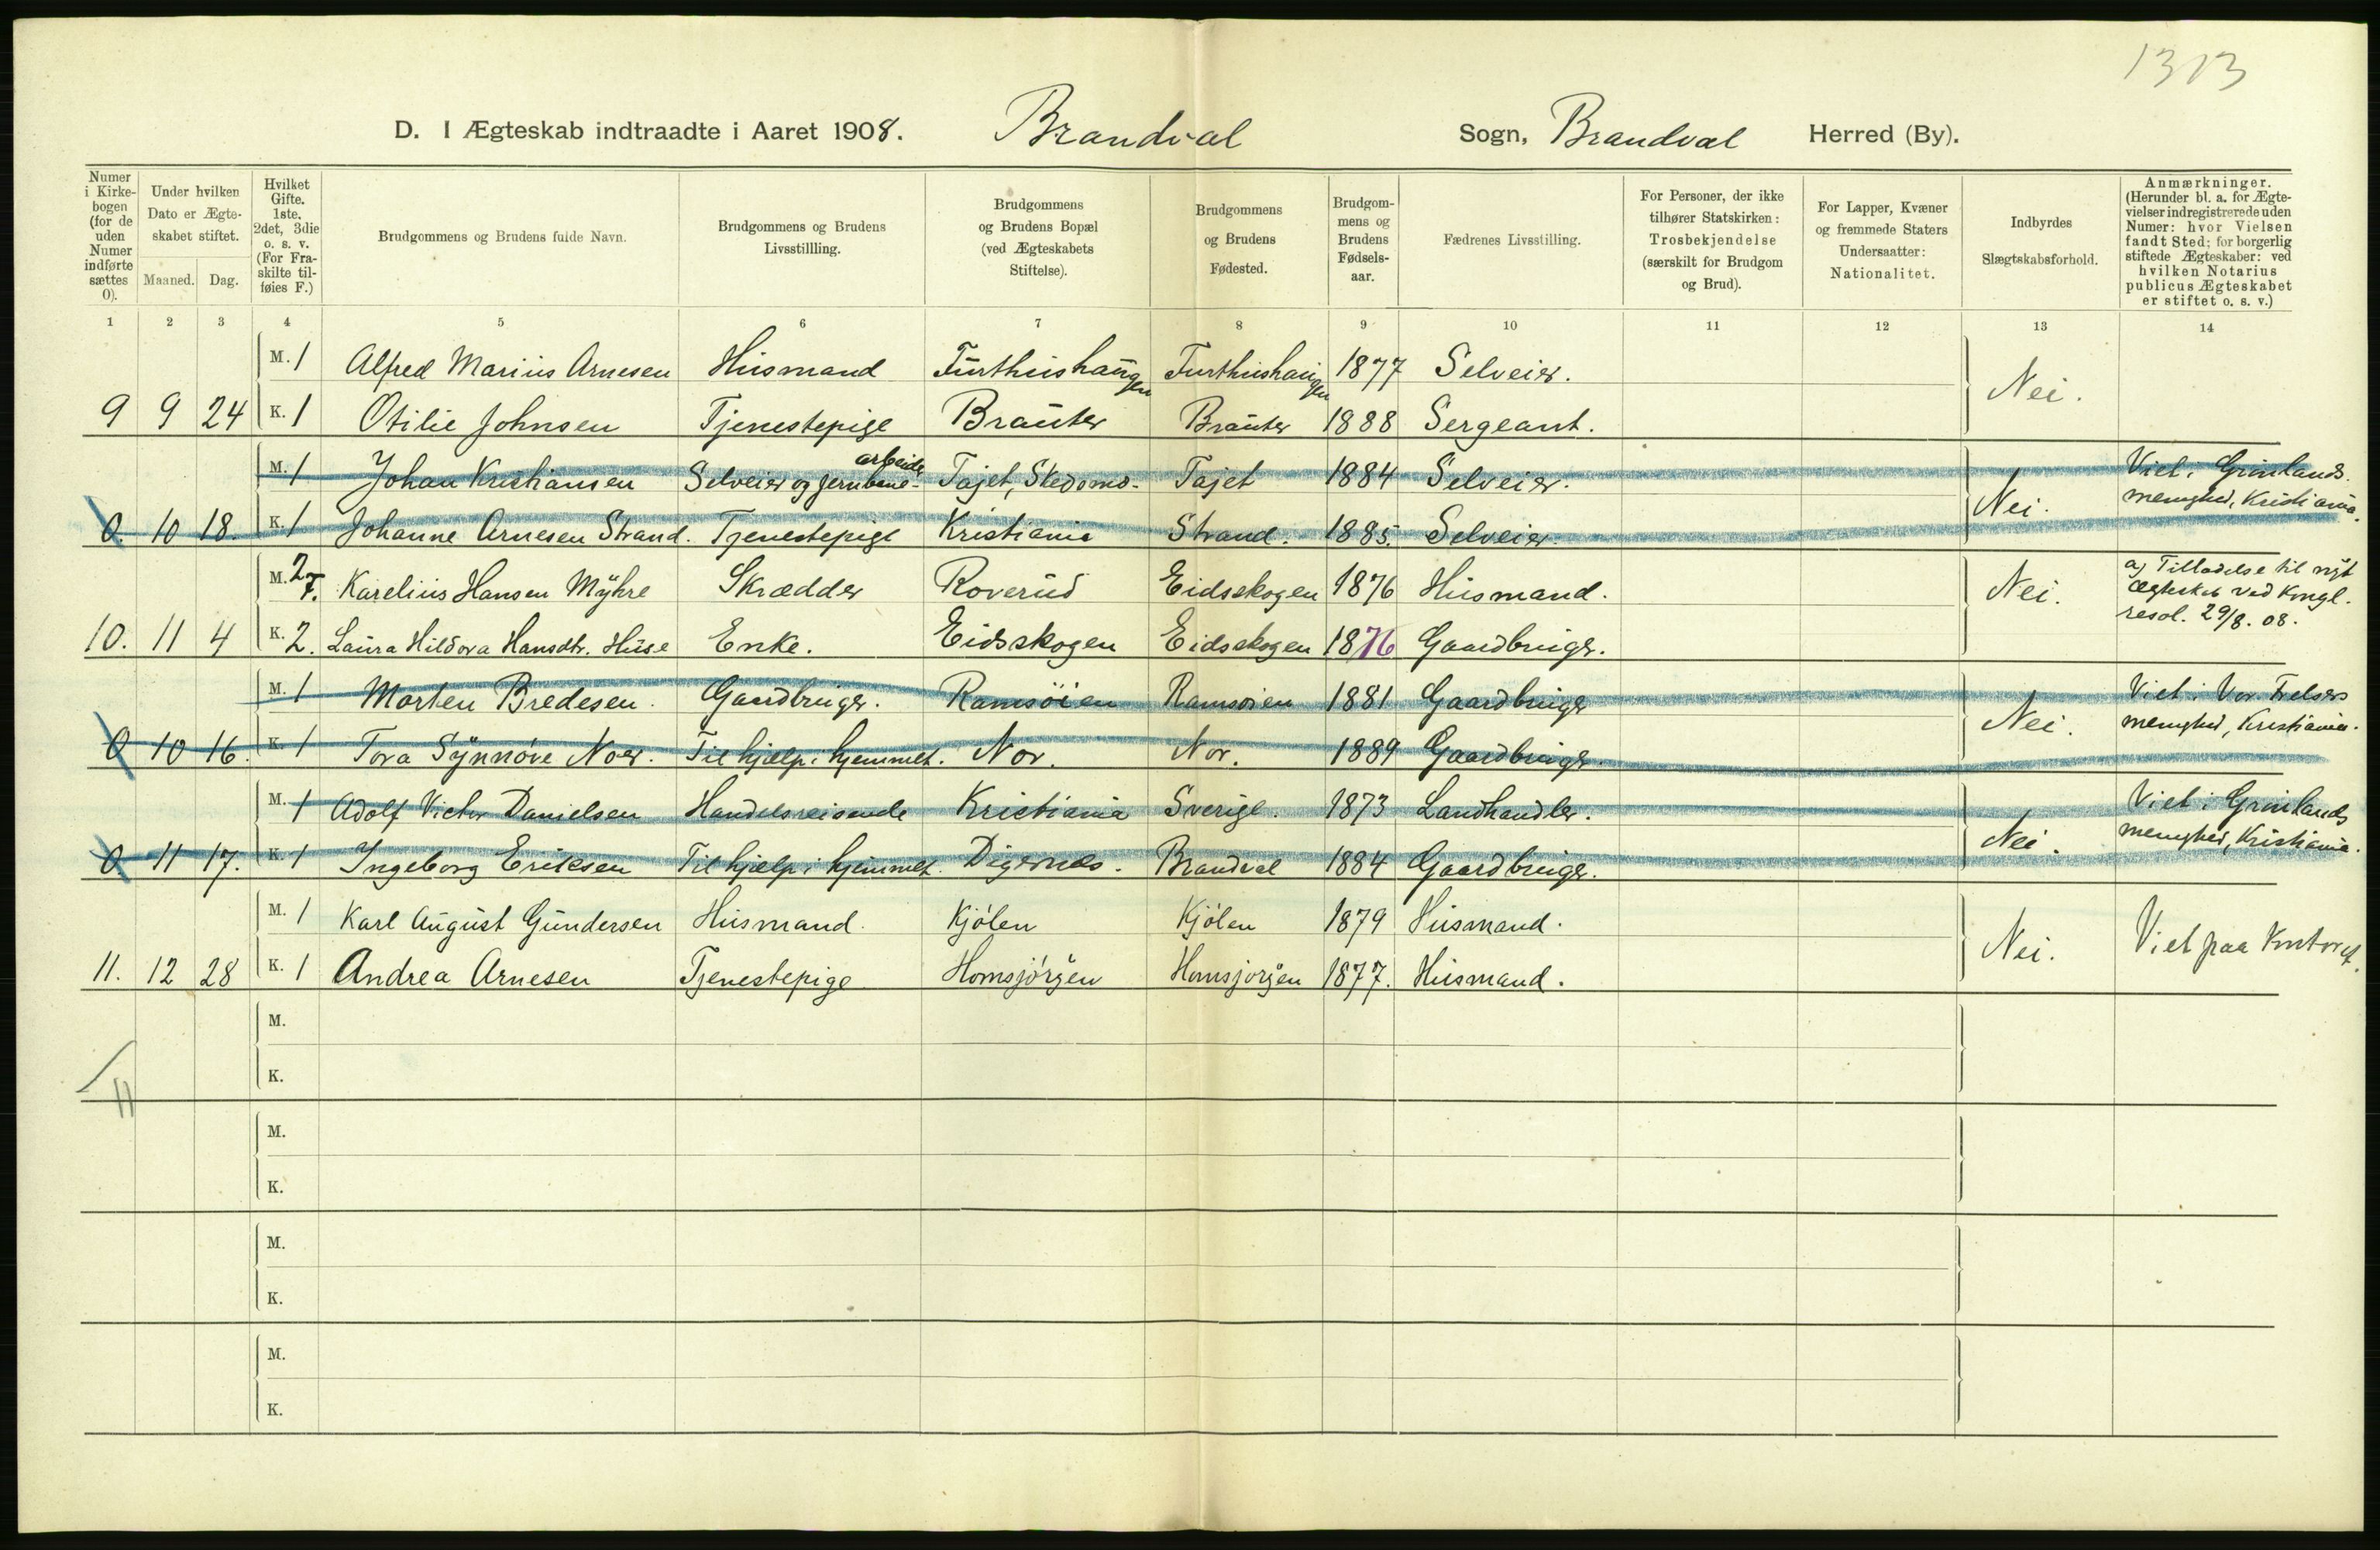 1313
D. I Ægteskab indtraadte i Aaret 1908. Brandval Sogn, Brandval Herred (By).
Numer i Kirkebogen (for de uden Numer indførte sættes 0).
Under hvilken Dato er Ægteskabet stiftet.
Maaned. Dag.
Hvilket Gifte. 1ste, 2det, 3die o. s. v. (For Fraskilte tilføies F.)
Brudgommens og Brudens fulde Navn.
Brudgommens og Brudens Livsstillling.
Brudgommens og Brudens Bopæl (ved Ægteskabets Stiftelse).
Brudgommens og Brudens Fødested.
Brudgommens og Brudens Fødselsaar.
Fædrenes Livsstilling.
For Personer, der ikke tilhører Statskirken: Trosbekjendelse (særskilt for Brudgom og Brud).
For Lapper, Kvæner og fremmede Staters Undersaatter: Nationalitet.
Indbyrdes Slægtskabsforhold.
Anmærkninger. (Herunder bl. a. for Ægtevielser indregistrerede uden Numer: hvor Vielsen fandt Sted; for borgerlig stiftede Ægteskaber: ved hvilken Notarius publicus Ægteskabet er stiftet o. s. v.)
1 2 3 4 5 6 7 8 9 10 11 12 13 14
M. 1 Alfred Marius Arnesen Husmand Furthushaugen Furthushaugen 1877 Selveier.
Nei.
9 9 24 K. 1 Otilie Johnsen Tjenestepige Brauter Brauter 1888 Sergeant.
M. 1 Johan Kristiansen Selveier og jernbane-arbeider Tajet, Tajet 1884 Selveier. Viet i Grønlands
Nei. menighed, Kristiania.
0 10 18. K. 1 Johanne Arnesen Strand. Tjenestepige Kristiania Strand. 1885. Selveier.
M. 2 F. Karelius Hansen Myhre Skrædder Roverud Eidsskogen 1876 Husmand. Nei. a) Tilladelse til nyt
ægteskab ved Kongl.
resol. 29/8. 08.
10. 11 4 K. 2. Laura Hildova Hansdtr. Huse Enke. Eidsskogen Eidsskogen 1876 Gaardbruger.
M. 1 Morten Bredesen. Gaardbruger. Ramsöien Ramsöien 1881 Gaardbruger Viet i Vor Frelsers
Nei. menighed, Kristiania.
0 10 16. K. 1 Tora Synnöve Noer. Til hjælp i hjemmet. Nor. Nor. 1889 Gaardbruger.
M. 1 Adolf Victor Danielsen Handelsreisende Kristiania Sverige. 1873 Landhandler. Viet i Grønlands
Nei. menighed, Kristiania.
0 11 17. K. 1 Ingeborg Eriksen Til hjælp i hjemmet. Digernes. Brandval 1884 Gaardbruger.
M. 1 Karl August Gundersen Husmand. Kjölen Kjölen 1879 Husmand.
Nei. Viet paa Kontoret.
11. 12 28 K. 1 Andrea Arnesen Tjenestepige Homsjörgen Homsjorgen 1877. Husmand.
M.
K.
11
M.
K.
M.
K.
M.
K.